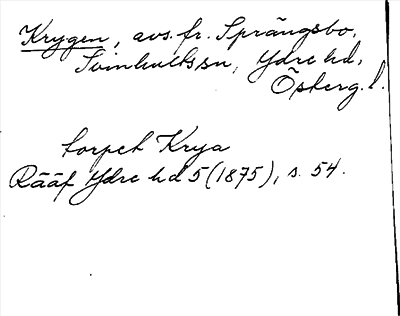 Krygen, avs. fr. Sprängsbo,
Svinhults sn, Ydre hd,
Österg. l.
torpet Krya
Rääf Ydre hd 5 (1875), s. 54.